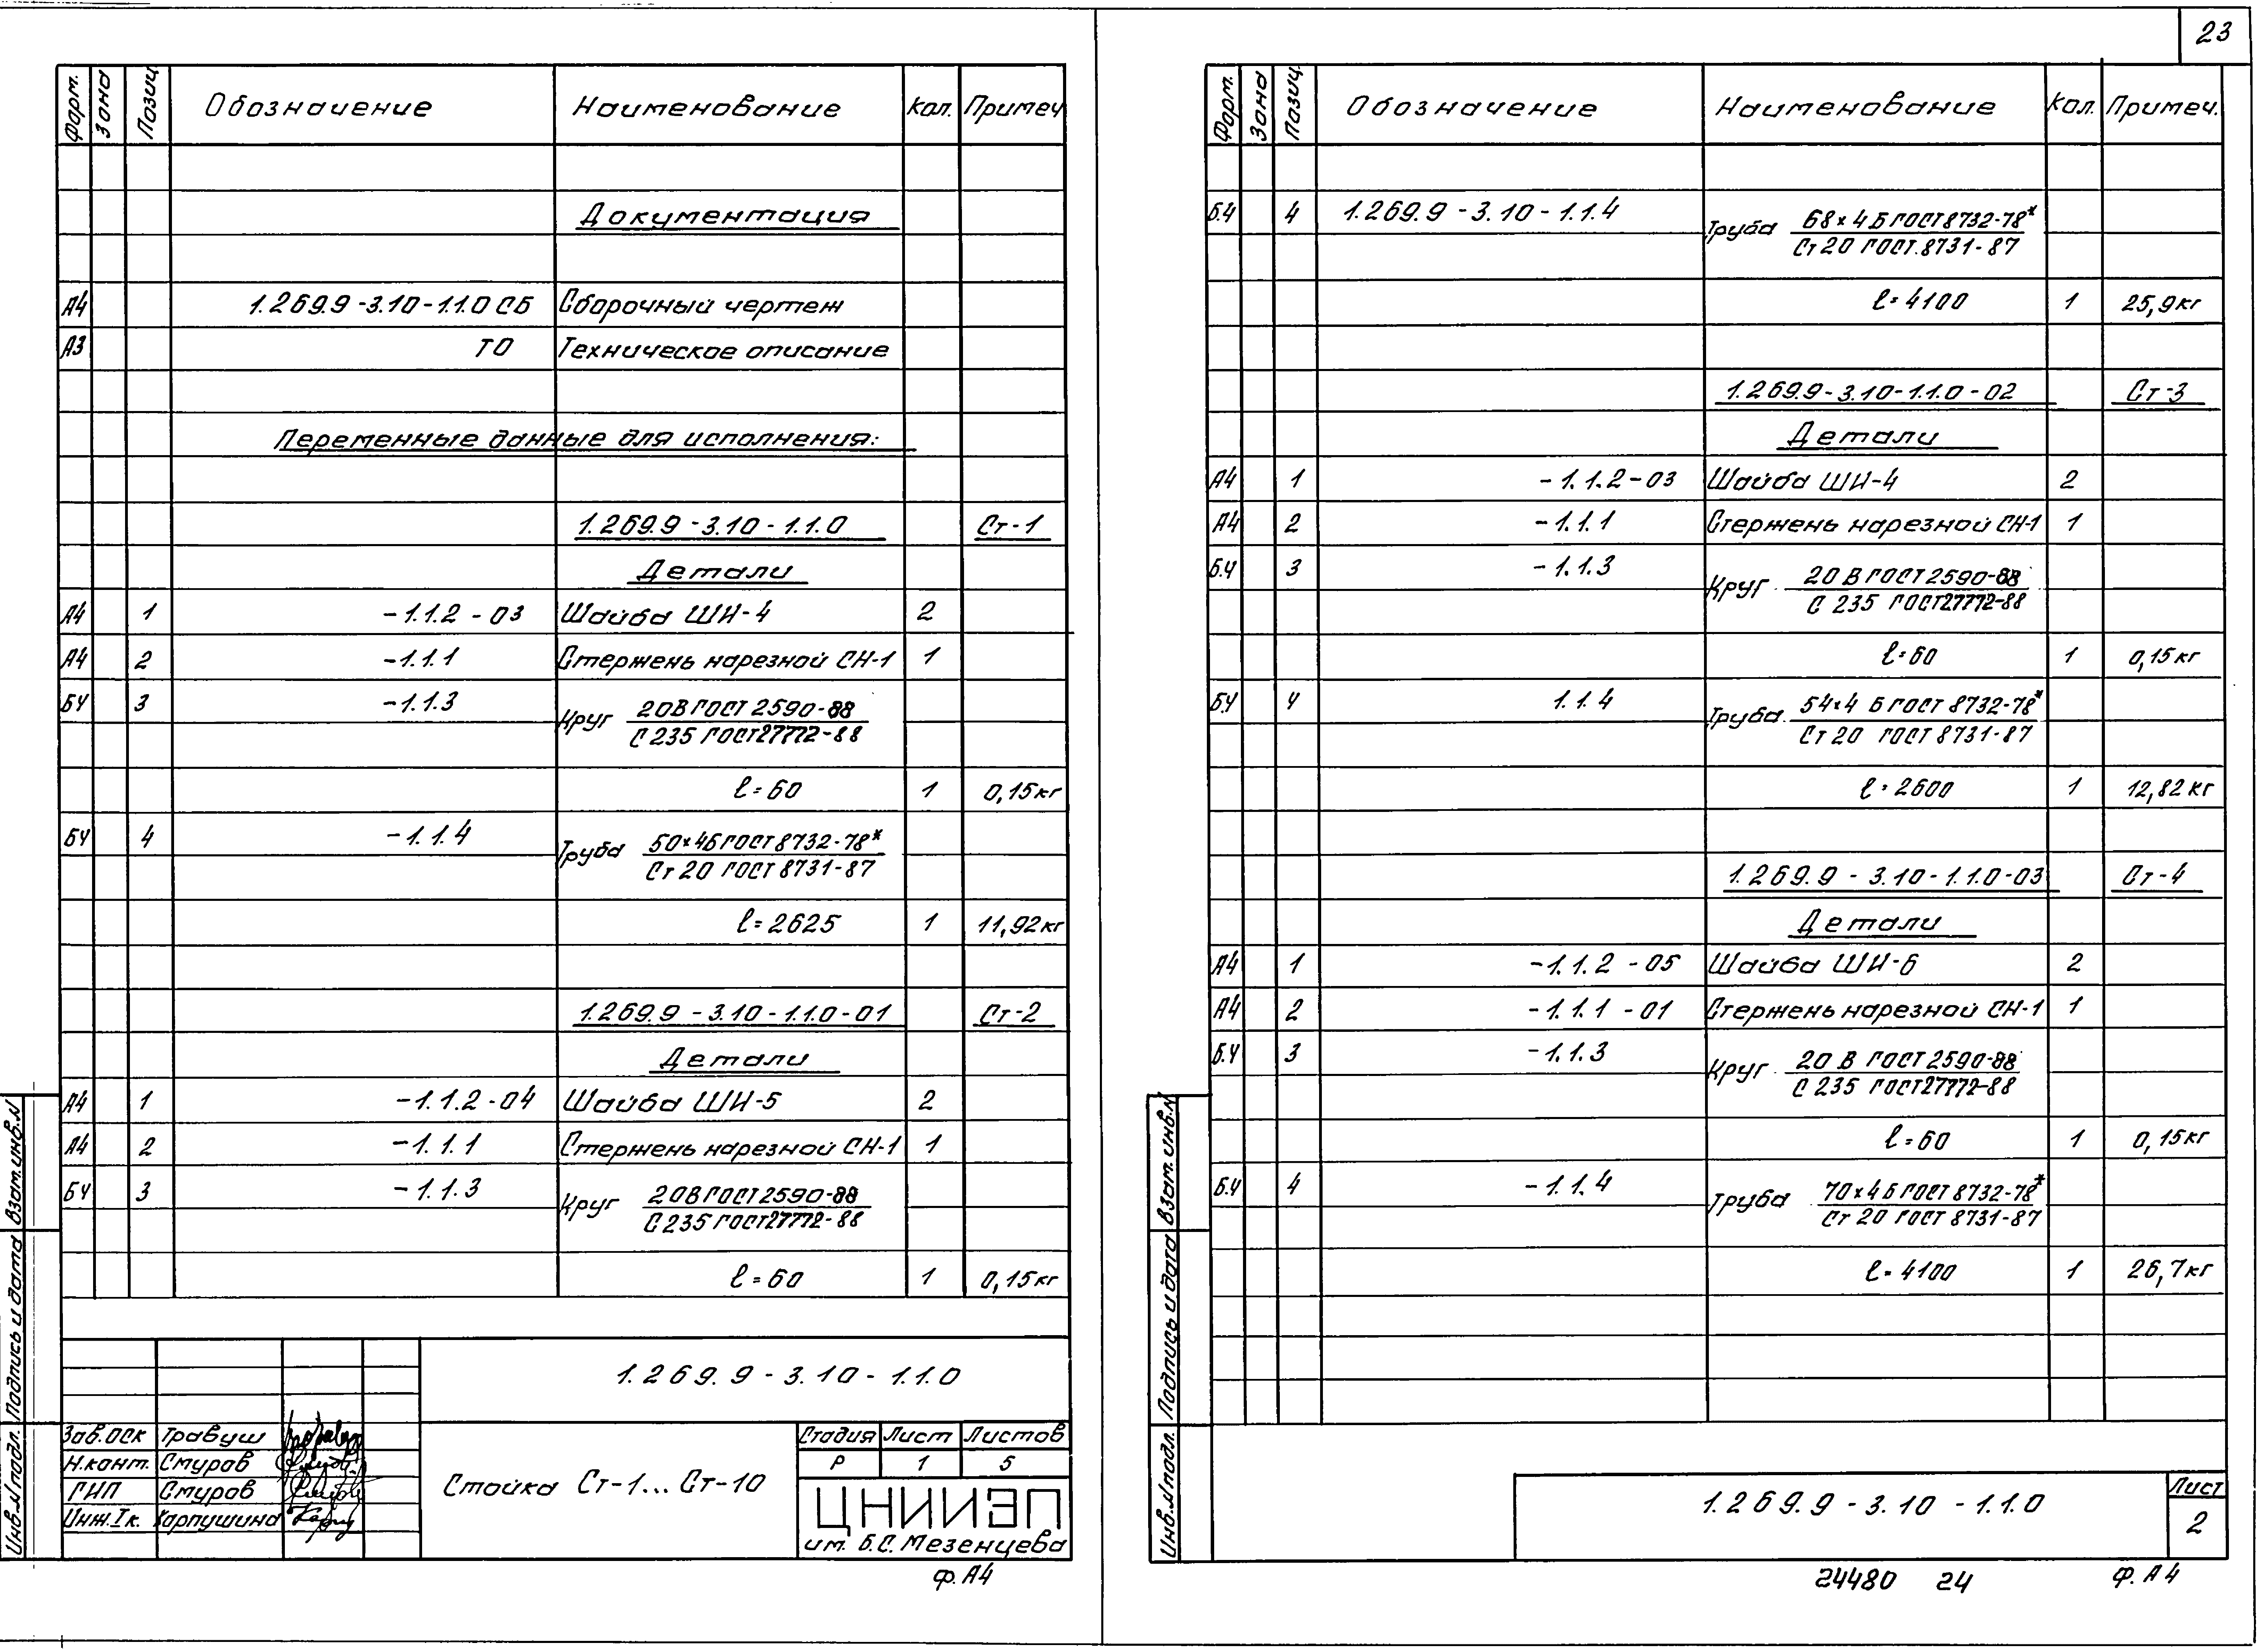 23
Форм. Зона Позиц. Обозначение Наименование Кол. Примеч.
Документация
А4 1.269.9-3.10-1.1.0 СБ Сборочный чертеж
А3 ТО Техническое описание
Переменные данные для исполнения:
1.269.9-3.10-1.1.0 Ст-1
Детали
А4 1 -1.1.2-03 Шайба ШИ-4 2
А4 2 -1.1.1 Стержень нарезной СН-1 1
БЧ 3 -1.1.3 Круг 20В ГОСТ 2590-88
С 235 ГОСТ 27772-88
ℓ=60 1 0,15кг
БЧ 4 -1.1.4 Труба 50×4Б ГОСТ 8732-78*
Ст 20 ГОСТ 8731-87
ℓ=2625 1 11,92кг
1.269.9-3.10-1.1.0-01 Ст-2
Детали
А4 1 -1.1.2-04 Шайба ШИ-5 2
А4 2 -1.1.1 Стержень нарезной СН-1 1
БЧ 3 -1.1.3 Круг 20В ГОСТ 2590-88
С 235 ГОСТ 27772-88
ℓ=60 1 0,15кг
Взам.инв.N
Подпись и дата
Инв.N подл.
1.269.9-3.10-1.1.0
Зав.ОСК Травуш
Н.конт. Смуров
ГИП Смуров
Инж.Iк. Карпушина
Стойка Ст-1... Ст-10
Стадия Лист Листов
Р 1 5
ЦНИИЭП
им. Б.С. Мезенцева
Ф. А4
Форм. Зона Позиц. Обозначение Наименование Кол. Примеч.
Б.Ч 4 1.269.9-3.10-1.1.4 Труба 68×4 Б ГОСТ 8732-78*
Ст 20 ГОСТ.8731-87
ℓ=4100 1 25,9кг
1.269.9-3.10-1.1.0-02 Ст-3
Детали
А4 1 -1.1.2-03 Шайба ШИ-4 2
А4 2 -1.1.1 Стержень нарезной СН-1 1
Б.Ч 3 -1.1.3 Круг 20 В ГОСТ 2590-88
С 235 ГОСТ 27772-88
ℓ=60 1 0,15кг
Б.Ч 4 1.1.4 Труба 54×4 Б ГОСТ 8732-78*
Ст 20 ГОСТ 8731-87
ℓ=2600 1 12,82 кг
1.269.9-3.10-1.1.0-03 Ст-4
Детали
А4 1 -1.1.2-05 Шайба ШИ-6 2
А4 2 -1.1.1-01 Стержень нарезной СН-1 1
Б.Ч 3 -1.1.3 Круг 20 В ГОСТ 2590-88
С 235 ГОСТ 27772-88
ℓ=60 1 0,15кг
Б.Ч 4 -1.1.4 Труба 70×4 Б ГОСТ 8732-78*
Ст 20 ГОСТ 8731-87
ℓ=4100 1 26,7кг
Взам.инв.N
Подпись и дата
Инв.N подл.
1.269.9-3.10-1.1.0
Лист
2
24480 24
Ф. А4